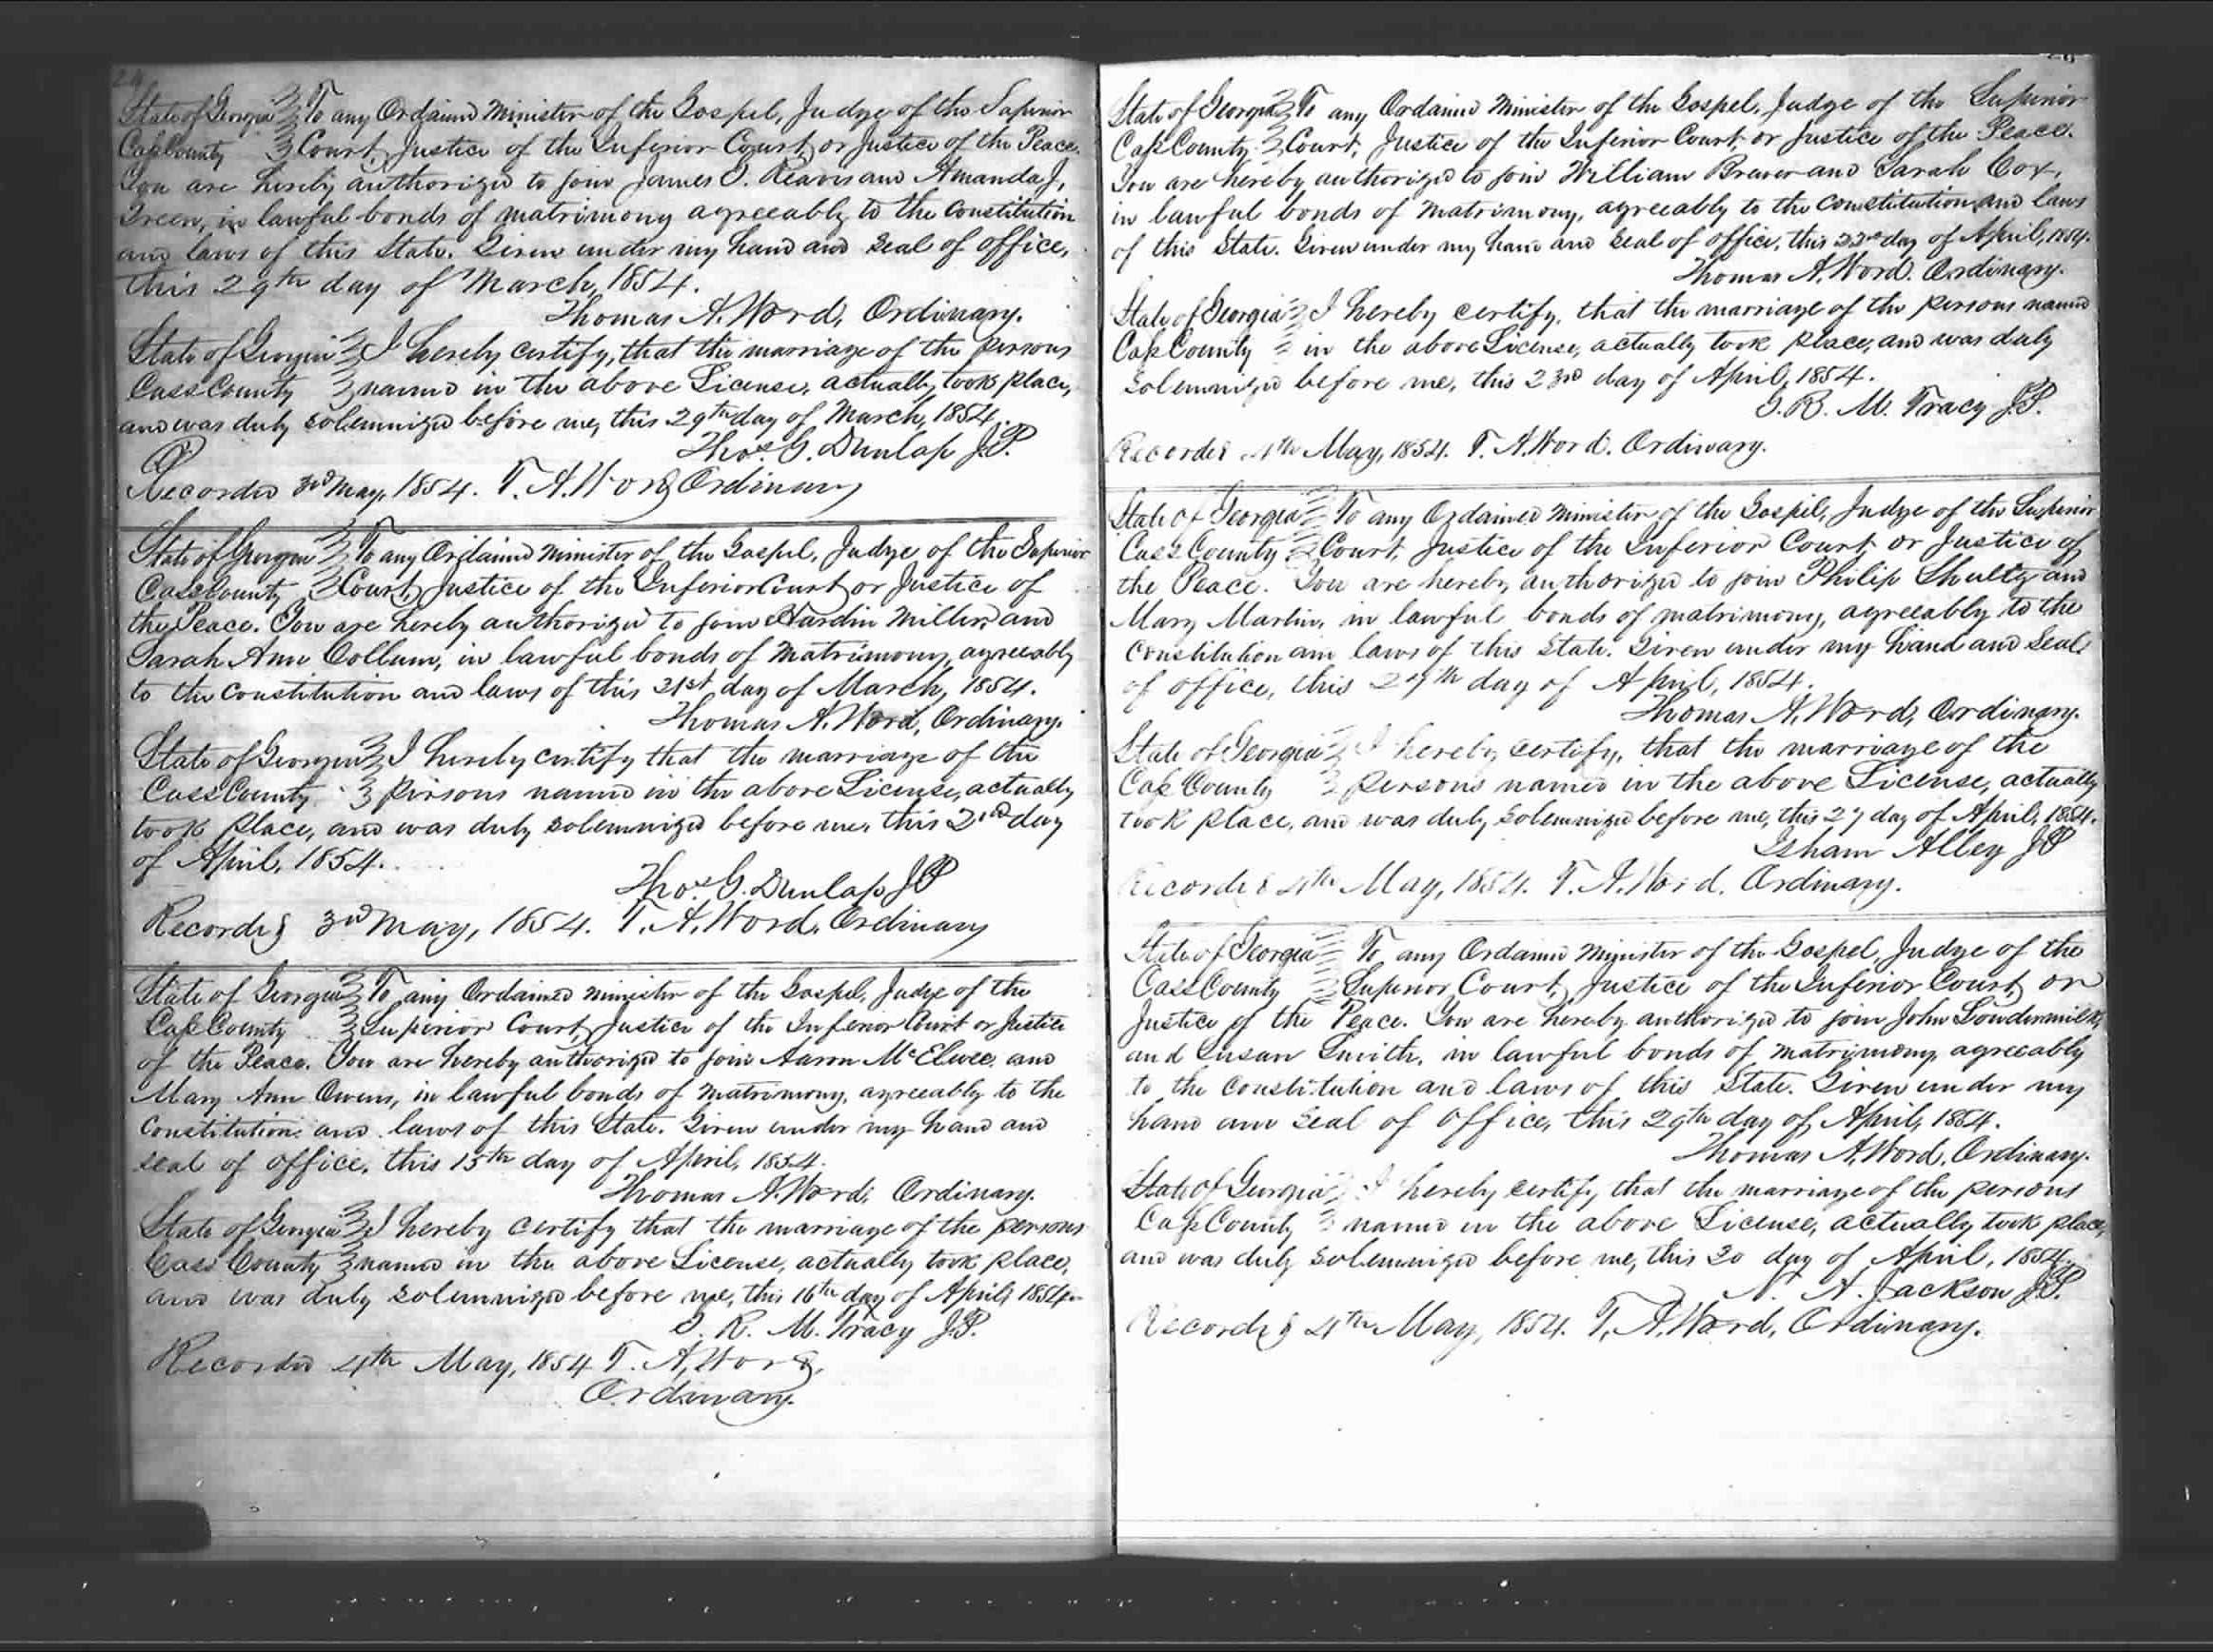 24
State of Georgia } To any Ordained Minister of the Gospel, Judge of the Superior
Cass County } Court, Justice of the Inferior Court, or Justice of the Peace.
You are hereby authorized to join James O. Reavis and Amanda J,
Green, in lawful bonds of matrimony agreeably to the Constitution
and laws of this State. Given under my hand and seal of office,
this 29th day of March, 1854.
Thomas A. Word, Ordinary.
State of Georgia } I hereby certify, that the marriage of the persons
Cass County } named in the above License, actually took place,
and was duly solemnized before me, this 29th day of March, 1854.
Thos. G. Dunlap J.P.
Recorded 3rd May, 1854. T. A. Word Ordinary
State of Georgia } To any Ordained Minister of the Gospel, Judge of the Superior
Cass County } Court, Justice of the Inferior Court, or Justice of
the Peace. You are hereby authorized to join Hardin Miller, and
Sarah Ann Collum, in lawful bonds of matrimony, agreeably
to the Constitution and laws of this 31st day of March, 1854.
Thomas A. Word, Ordinary.
State of Georgia } I hereby certify that the marriage of the
Cass County } persons named in the above License, actually
took place, and was duly solemnized before me, this 2nd day
of April, 1854.
Thos. G. Dunlap JP
Recorded 3rd May, 1854. T. A. Word, Ordinary
State of Georgia } To any Ordained minister of the Gospel, Judge of the
Cass County } Superior Court, Justice of the Inferior Court or Justice
of the Peace. You are hereby authorized to join Aaron McElwee, and
Mary Ann Owens, in lawful bonds of matrimony, agreeably to the
Constitution and laws of this State. Given under my hand and
seal of office, this 15th day of April, 1854.
Thomas A. Word, Ordinary.
State of Georgia } I hereby certify that the marriage of the persons
Cass County } named in the above License, actually took place,
and was duly solemnized before me, this 16th day of April, 1854.
R. M. Tracy J.P.
Recorded 4th May, 1854 T. A. Word,
Ordinary.
State of Georgia } To any Ordained Minister of the Gospel, Judge of the Superior
Cass County } Court, Justice of the Inferior Court, or Justice of the Peace.
You are hereby authorized to join William Brewer and Sarah Cox,
in lawful bonds of matrimony, agreeably to the Constitution and laws
of this State. Given under my hand and seal of office, this 22nd day of April, 1854.
Thomas A. Word. Ordinary.
State of Georgia } I hereby certify, that the marriage of the persons named
Cass County } in the above License, actually took place, and was duly
solemnized before me, this 23rd day of April, 1854.
R. M. Tracy J.P.
Recorded 4th May, 1854. T. A. Word. Ordinary.
State of Georgia } To any Ordained Minister of the Gospel, Judge of the Superior
Cass County } Court, Justice of the Inferior Court, or Justice of
the Peace. You are hereby authorized to join Philip Shultz and
Mary Martin, in lawful bonds of matrimony, agreeably to the
Constitution and laws of this State. Given under my hand and seal
of office, this 27th day of April, 1854.
Thomas A. Word, Ordinary.
State of Georgia } I hereby certify, that the marriage of the
Cass County } persons named in the above License, actually
took place, and was duly solemnized before me, this 27 day of April, 1854.
Isham Alley JP
Recorded 4th May, 1854. T. A. Word. Ordinary.
State of Georgia } To any Ordained Minister of the Gospel, Judge of the
Cass County } Superior Court, Justice of the Inferior Court, or
Justice of the Peace. You are hereby authorized to join John Lowdermilk,
and Susan Smith, in lawful bonds of matrimony, agreeably
to the Constitution and laws of this State. Given under my
hand and seal of office, this 29th day of April, 1854.
Thomas A. Word, Ordinary.
State of Georgia } I hereby certify that the marriage of the persons
Cass County } named in the above License, actually took place,
and was duly solemnized before me, this 30 day of April, 1854.
A. Jackson J.P.
Recorded 4th May, 1854. T. A. Word, Ordinary.